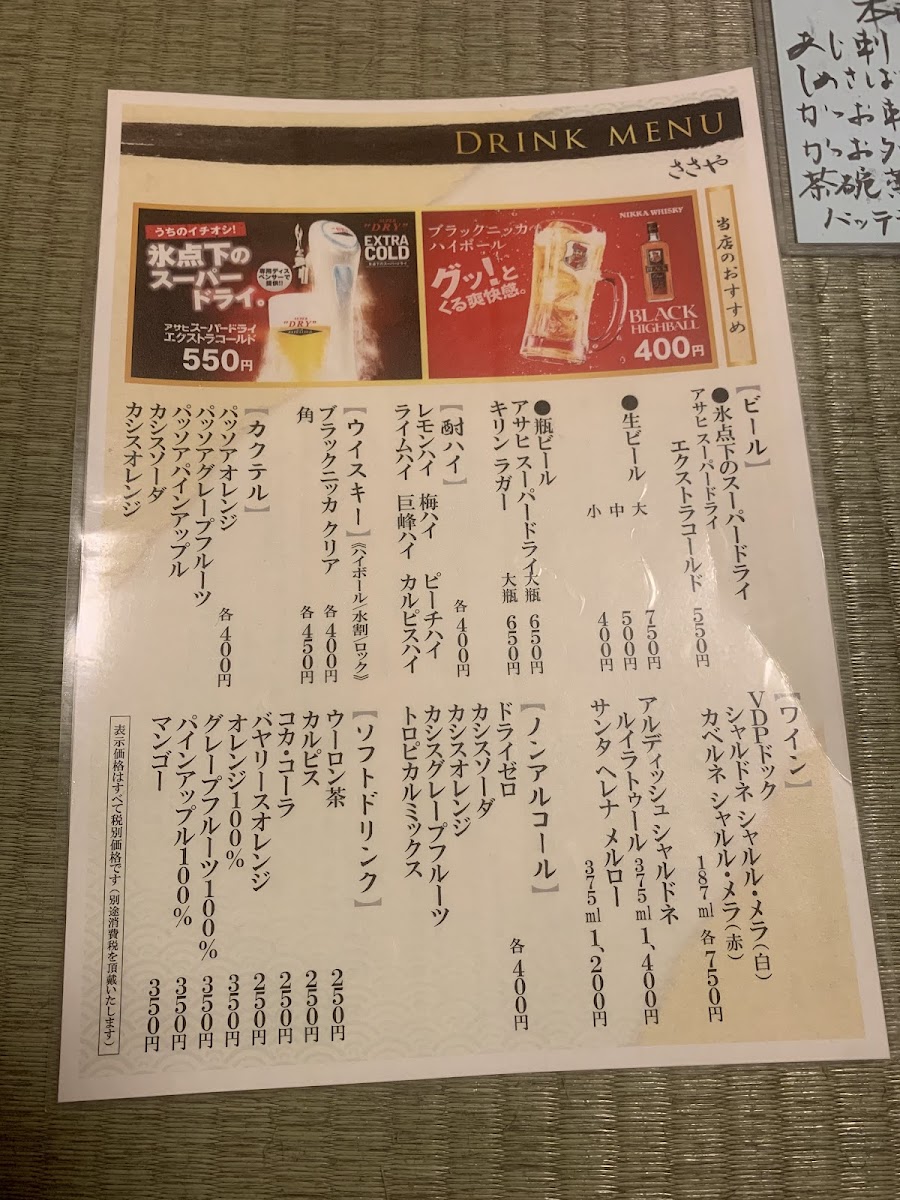 DRINK MENU
ささや
当店のおすすめ
うちのイチオシ!
氷点下の
スーパー
ドライ。
専用ディス
ペンサーで
提供!!
アサヒスーパードライ
エクストラコールド
550円
SUPER
"DRY"
EXTRA
COLD
"DRY"
ブラックニッカ
ハイボール
グッ!と
くる爽快感。
NIKKA WHISKY
BLACK
HIGHBALL
400円
【ビール】
●氷点下のスーパードライ
アサヒ スーパードライ
エクストラコールド 550円
●生ビール 大 750円
中 500円
小 400円
●瓶ビール
アサヒ スーパードライ 大瓶 650円
キリン ラガー 大瓶 650円
【酎ハイ】 各400円
レモンハイ 梅ハイ ピーチハイ
ライムハイ 巨峰ハイ カルピスハイ
【ウイスキー】《ハイボール/水割/ロック》
ブラックニッカ クリア 各400円
角 各450円
【カクテル】
パッソアオレンジ 各400円
パッソアグレープフルーツ
パッソアパインアップル
カシスソーダ
カシスオレンジ
【ワイン】
VDPドック
シャルドネ シャルル・メラ(白)
カベルネ シャルル・メラ(赤)
187ml 各750円
アルディッシュ シャルドネ
ルイラトゥール 375ml 1,400円
サンタ ヘレナ メルロー
375ml 1,200円
【ノンアルコール】 各400円
ドライゼロ
カシスソーダ
カシスオレンジ
カシスグレープフルーツ
トロピカルミックス
【ソフトドリンク】
ウーロン茶 250円
カルピス 250円
コカ・コーラ 250円
バヤリースオレンジ 250円
オレンジ100% 350円
グレープフルーツ100% 350円
パインアップル100% 350円
マンゴー 350円
表示価格はすべて税別価格です(別途消費税を頂戴いたします)
あじ刺
しめさば
かつお刺
かつおタ
茶碗蒸
バッテラ